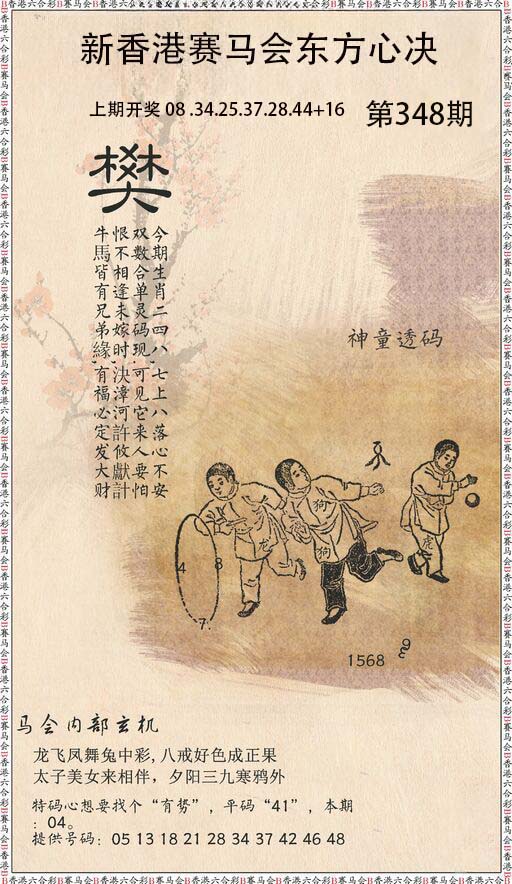 新香港赛马会东方心决
上期开奖 08 .34.25.37.28.44+16
第348期
樊
今期生肖二四八,七上八落心不安
双數合单灵码现,可见它来人要怕
恨不相逢未嫁时,決漳河許攸獻計
牛馬皆有兄弟緣,有福必定发大财
神童透码
龙
狗
狗
虎
4
8
7.
9
1568
马会内部玄机
龙飞凤舞兔中彩,八戒好色成正果
太子美女来相伴，夕阳三九寒鸦外
特码心想要找个“有势”，平码“41”，本期
：04。
提供号码：05 13 18 21 28 34 37 42 46 48
香港六合彩B赛马会B香港六合彩B赛马会B香港六合彩B赛马会